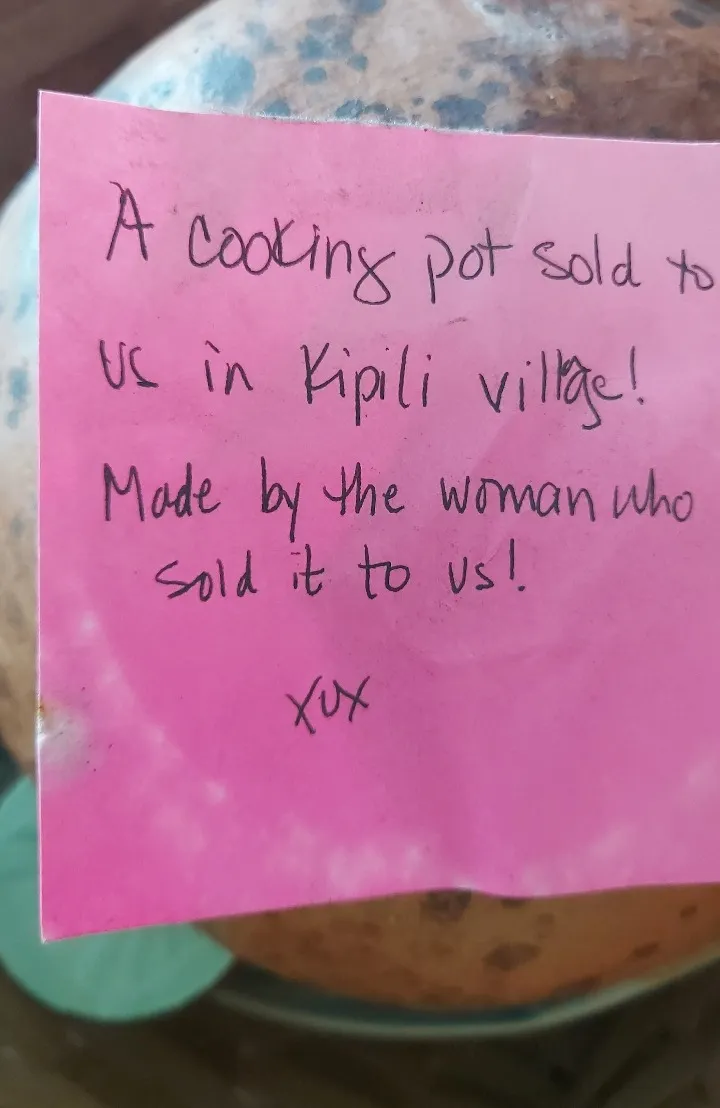 A cooking pot sold to
us in Kipili village!
Made by the woman who
sold it to us!
xux